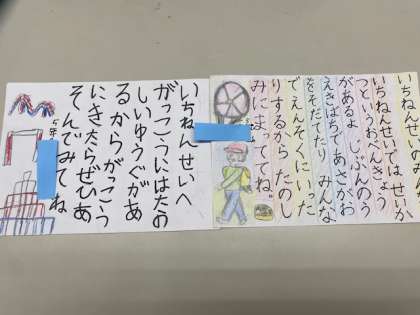 いちねんせい
いちねんせいではせいか
つというおべんきょう
があるよ じぶんのう
えきばちであさがお
をそだてたり みんな
でえんそくにいった
りするから たのし
みにまっててね。
いちねんせいへ
がっこうにはたの
しいゆうぐがあ
るからがっこう
にきたらぜひあ
そんでみてね
5年